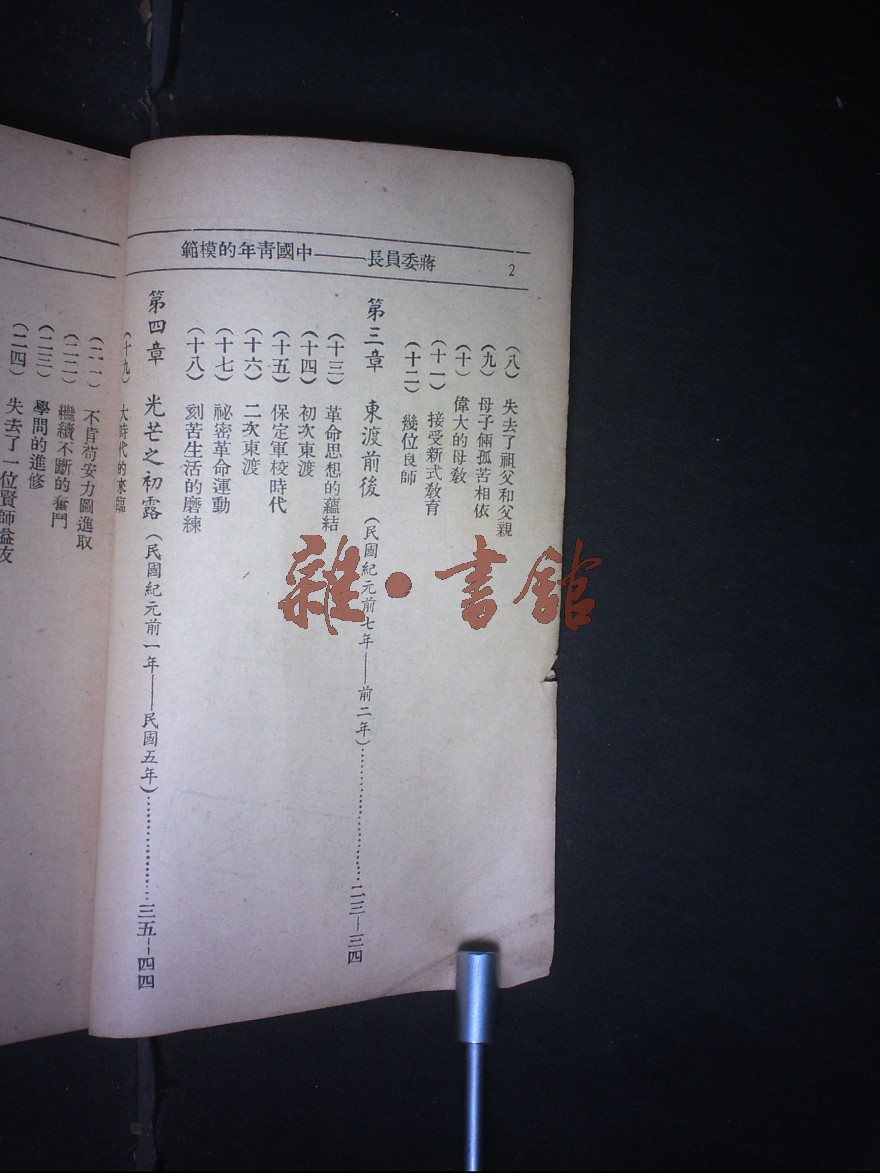 2
蔣委員長——中國靑年的模範
（八） 失去了祖父和父親
（九） 母子倆孤苦相依
（十） 偉大的母敎
（十一） 接受新式敎育
（十二） 幾位良師
第三章 東渡前後（民國紀元前七年——前二年）……………………二三—三四
（十三） 革命思想的蘊結
（十四） 初次東渡
（十五） 保定軍校時代
（十六） 二次東渡
（十七） 祕密革命運動
（十八） 刻苦生活的磨練
第四章 光芒之初露（民國紀元前一年——民國五年）……………………三五—四四
（十九） 大時代的來臨
（二一） 不肯苟安力圖進取
（二二） 繼續不斷的奮鬥
（二三） 學問的進修
（二四） 失去了一位賢師益友
雜·書館